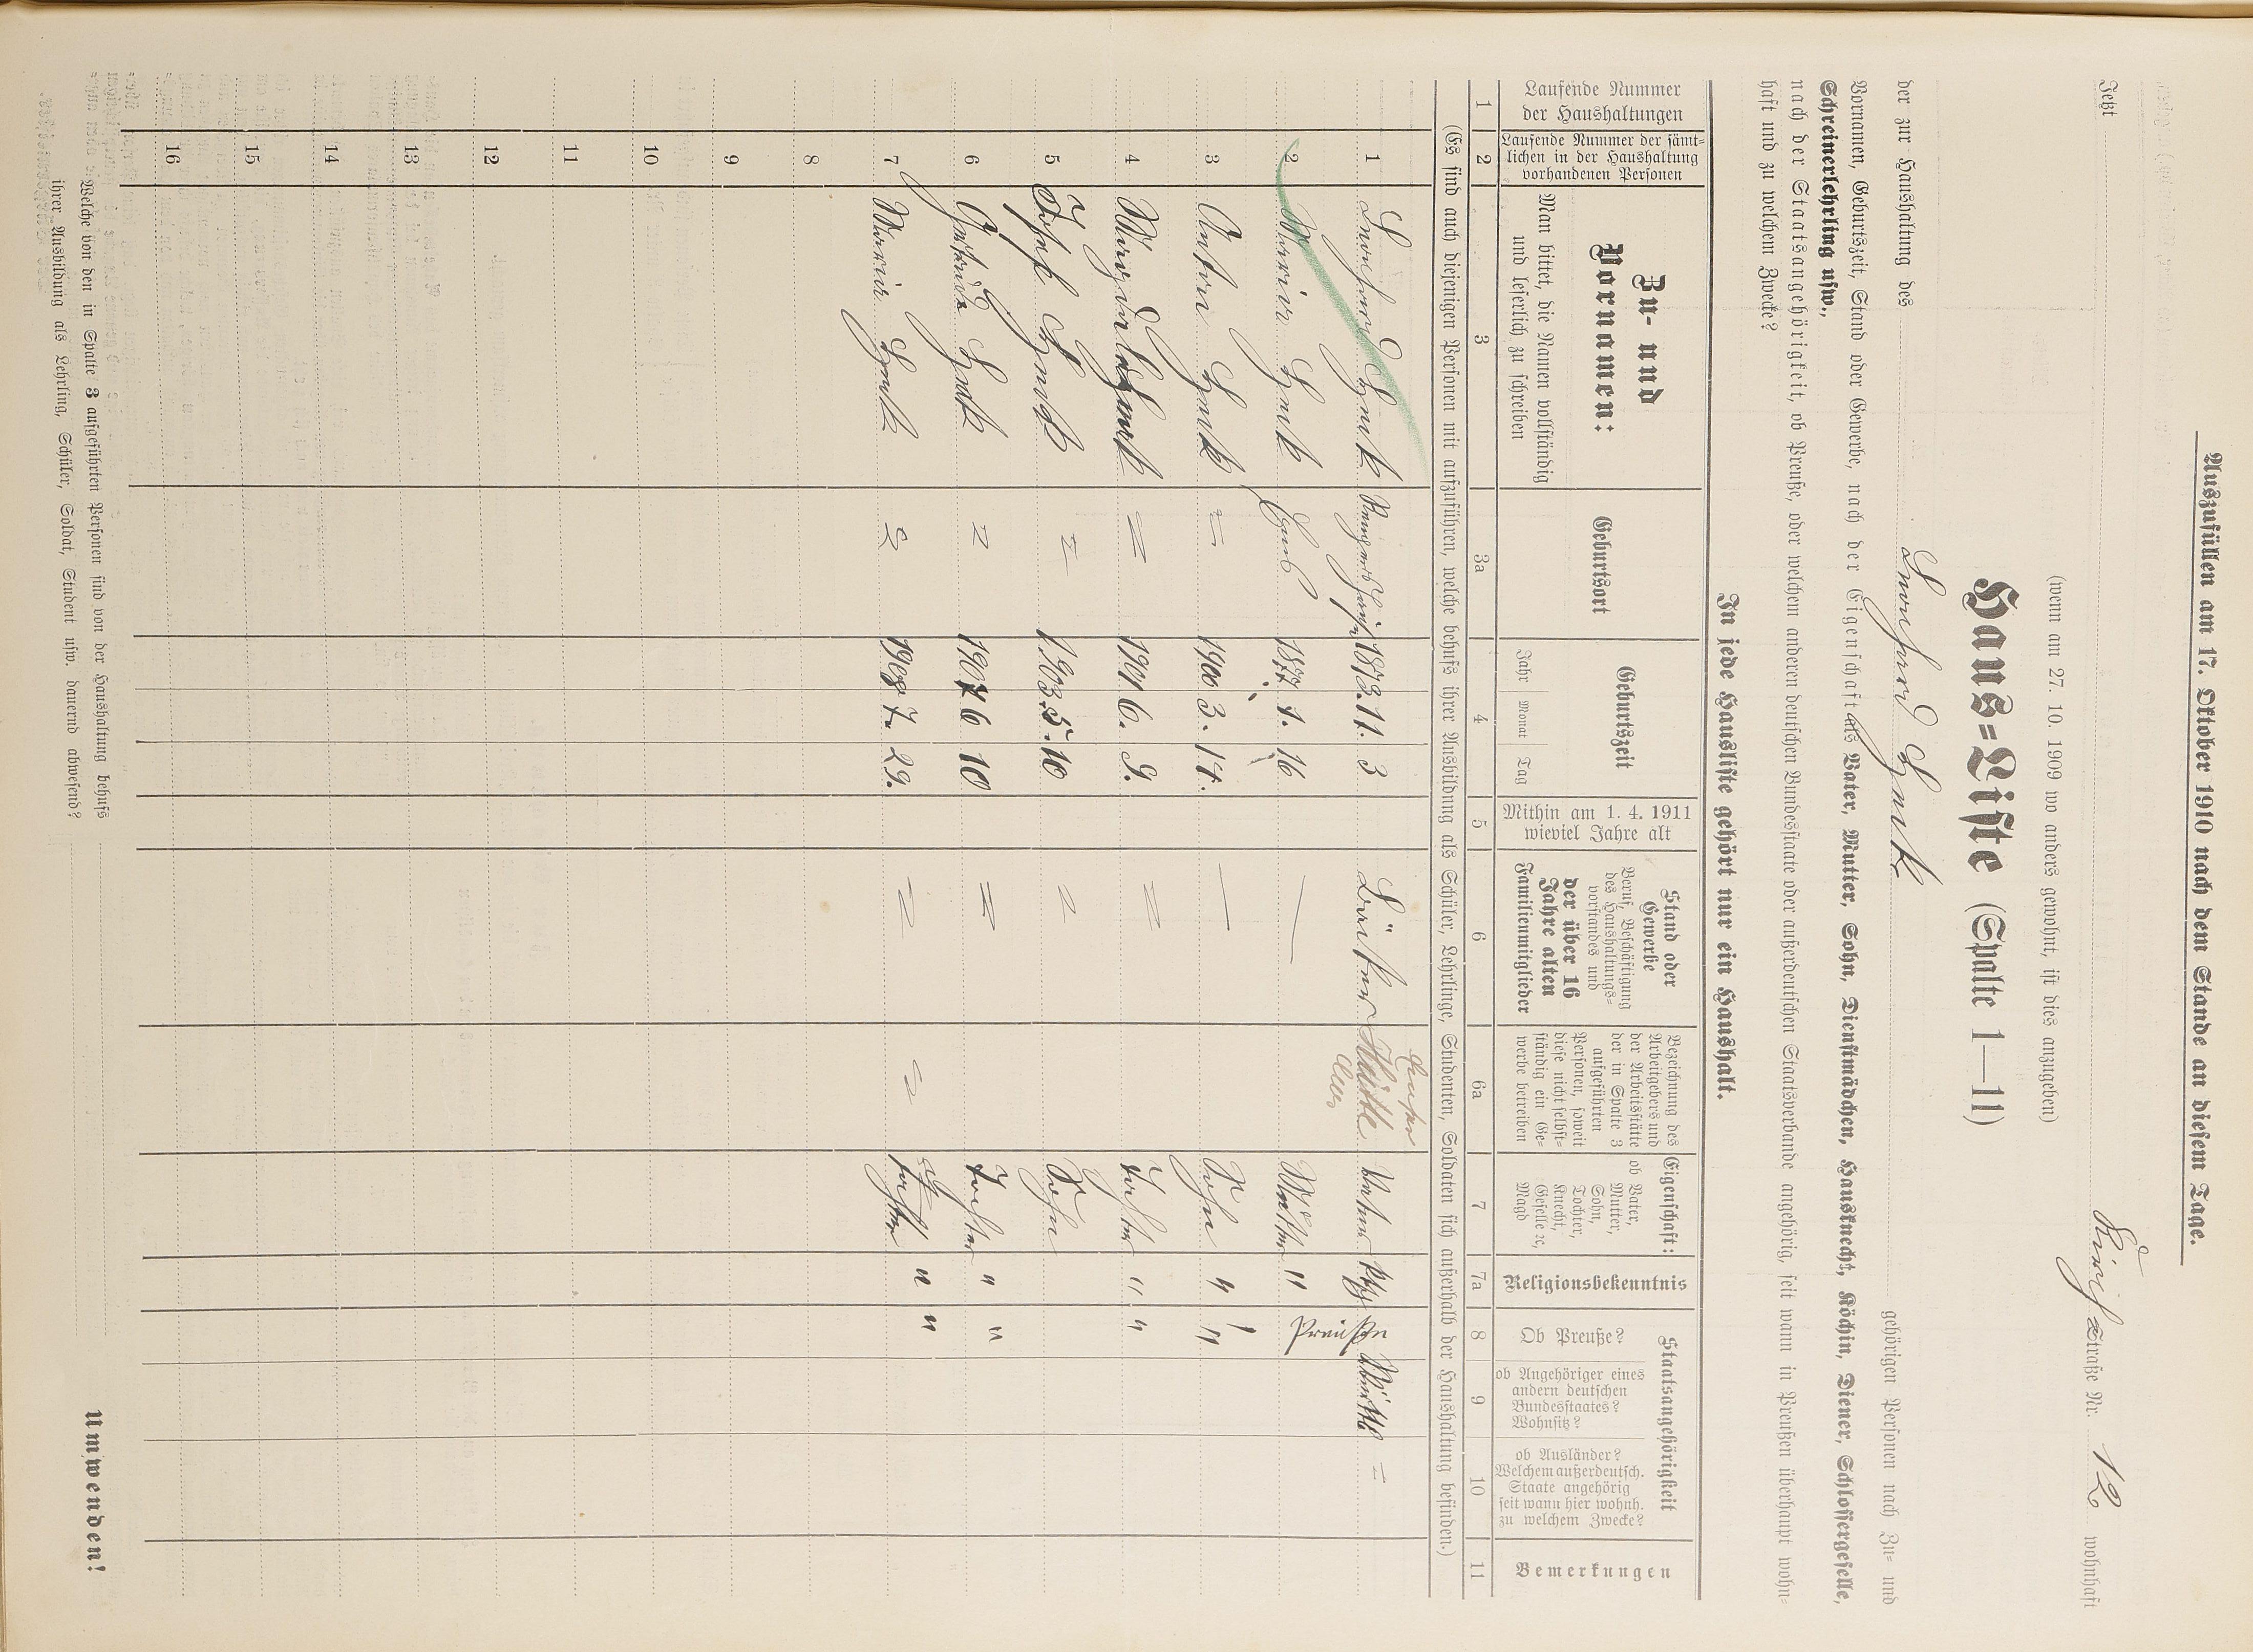 Auszufüllen am 17. Oktober 1910 nach dem Stande an diesem Tage.
Jetzt Straße Nr. 12 wohnhaft
(wenn am 27. 10. 1909 wo anders gewohnt, ist dies anzugeben)
Haus=Liste (Spalte 1—11)
der zur Haushaltung des gehörigen Personen nach Zu= und
Vornamen, Geburtszeit, Stand oder Gewerbe, nach der Eigenschaft als Vater, Mutter, Sohn, Dienstmädchen, Hausknecht, Köchin, Diener, Schlossergeselle,
Schreinerlehrling usw.,
nach der Staatsangehörigkeit, ob Preuße, oder welchem anderen deutschen Bundesstaate oder außerdeutschen Staatsverbande angehörig, seit wann in Preußen überhaupt wohn=
haft und zu welchem Zwecke?
In jede Hausliste gehört nur ein Haushalt.
Laufende Nummer der Haushaltungen
Laufende Nummer der sämt=lichen in der Haushaltung vorhandenen Personen
Zu- und Vornamen:
Man bittet, die Namen vollständig und leserlich zu schreiben
Geburtsort
Geburtszeit
Jahr Monat Tag
Mithin am 1. 4. 1911 wieviel Jahre alt
Stand oder Gewerbe
Beruf, Beschäftigung des Haushaltungs=vorstandes und
der über 16 Jahre alten Familienmitglieder
Bezeichnung des Arbeitgebers und der Arbeitsstätte der in Spalte 3 aufgeführten Personen, soweit diese nicht selbst=ständig ein Ge=werbe betreiben
Eigenschaft:
ob Vater, Mutter, Sohn, Tochter, Knecht, Geselle ec, Magd
Religionsbekenntnis
Staatsangehörigkeit
Ob Preuße?
ob Angehöriger eines andern deutschen Bundesstaates? Wohnsitz?
ob Ausländer? Welchem außerdeutsch. Staate angehörig seit wann hier wohnh. zu welchem Zwecke?
Bemerkungen
1 2 3 3a 4 5 6 6a 7 7a 8 9 10 11
(Es sind auch diejenigen Personen mit aufzuführen, welche behufs ihrer Ausbildung als Schüler, Lehrlinge, Studenten, Soldaten sich außerhalb der Haushaltung befinden.)
1 1873. 11. 3 Vater Kth Preuße
2 Maria 1877. 1. 16 — Mutter "
3 Anton = 1900 3. 17. — Sohn " "
4 = 1901 6. 9. = Tochter " "
5 Josef = 1903. 5. 10 = Sohn
6 Gertrud = 1907 6 10 = Tochter " "
7 Maria = 1908 7. 29. = = Tochter " "
8
9
10
11
12
13
14
15
16
Welche von den in Spalte 3 aufgeführten Personen sind von der Haushaltung behufs
ihrer Ausbildung als Lehrling, Schüler, Soldat, Student usw. dauernd abwesend?
Umwenden!